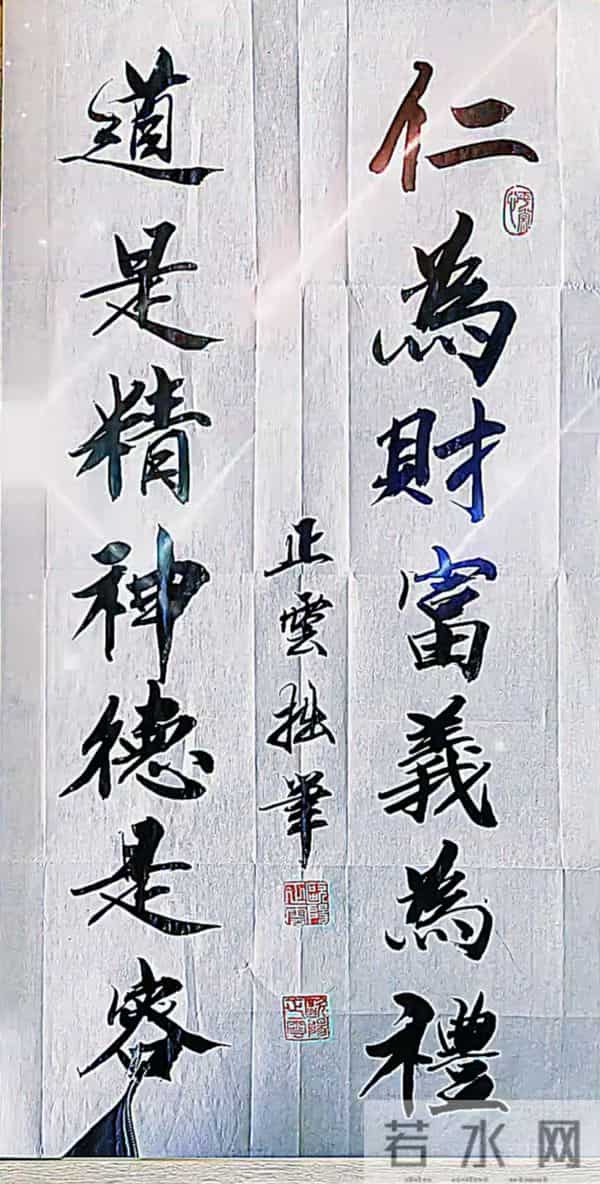 仁為財富義為禮
道是精神德是容
止雲拙筆
若水网